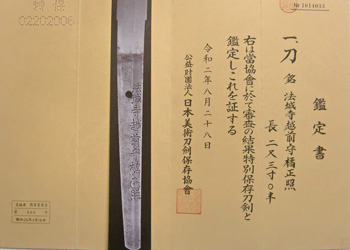 特保
02202006
№ 1014053
鑑定書
一、刀 銘 法城寺越前守橘正照
長 二尺三寸〇半
右は當協會に於て審査の結果特別保存刀剣と
鑑定しこれを証する
令和二年八月二十八日
公益財團法人 日本美術刀剣保存協會